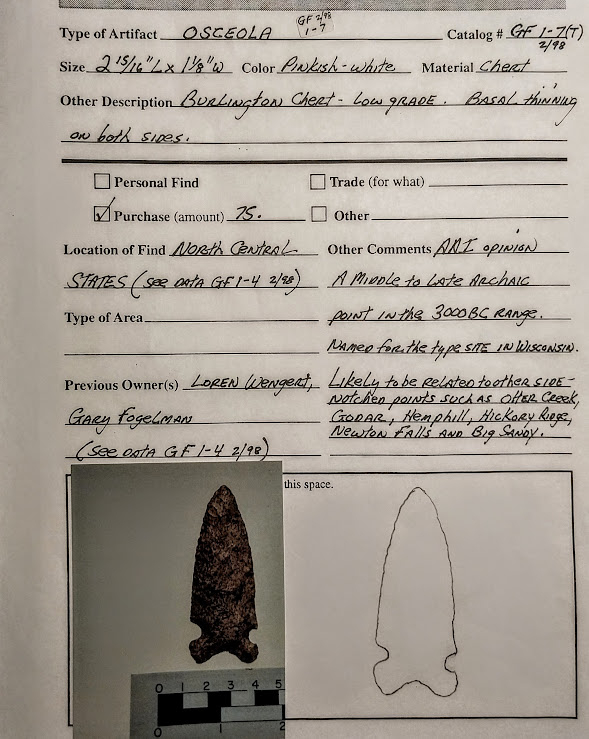 GF 2/98
1-7
Type of Artifact OSCEOLA Catalog # GF 1-7(T)
2/98
Size 2 15/16" L x 1 1/8" W Color Pinkish-white Material Chert
Other Description Burlington Chert - Low grade. Basal thinning
on both sides.
Personal Find Trade (for what)
Purchase (amount) 75. Other
Location of Find North Central Other Comments
States (see data GF 1-4 2/98) A Middle to Late Archaic
Type of Area point in the 3000 BC range.
Named for the type site in Wisconsin.
Previous Owner(s) Loren Wengert, Likely to be related to other side-
Gary Fogelman notched points such as Otter Creek,
Godar, Hemphill, Hickory Ridge,
(see data GF 1-4 2/98) Newton Falls and Big Sandy.
this space.
0 1 2 3 4 5
0 1 2